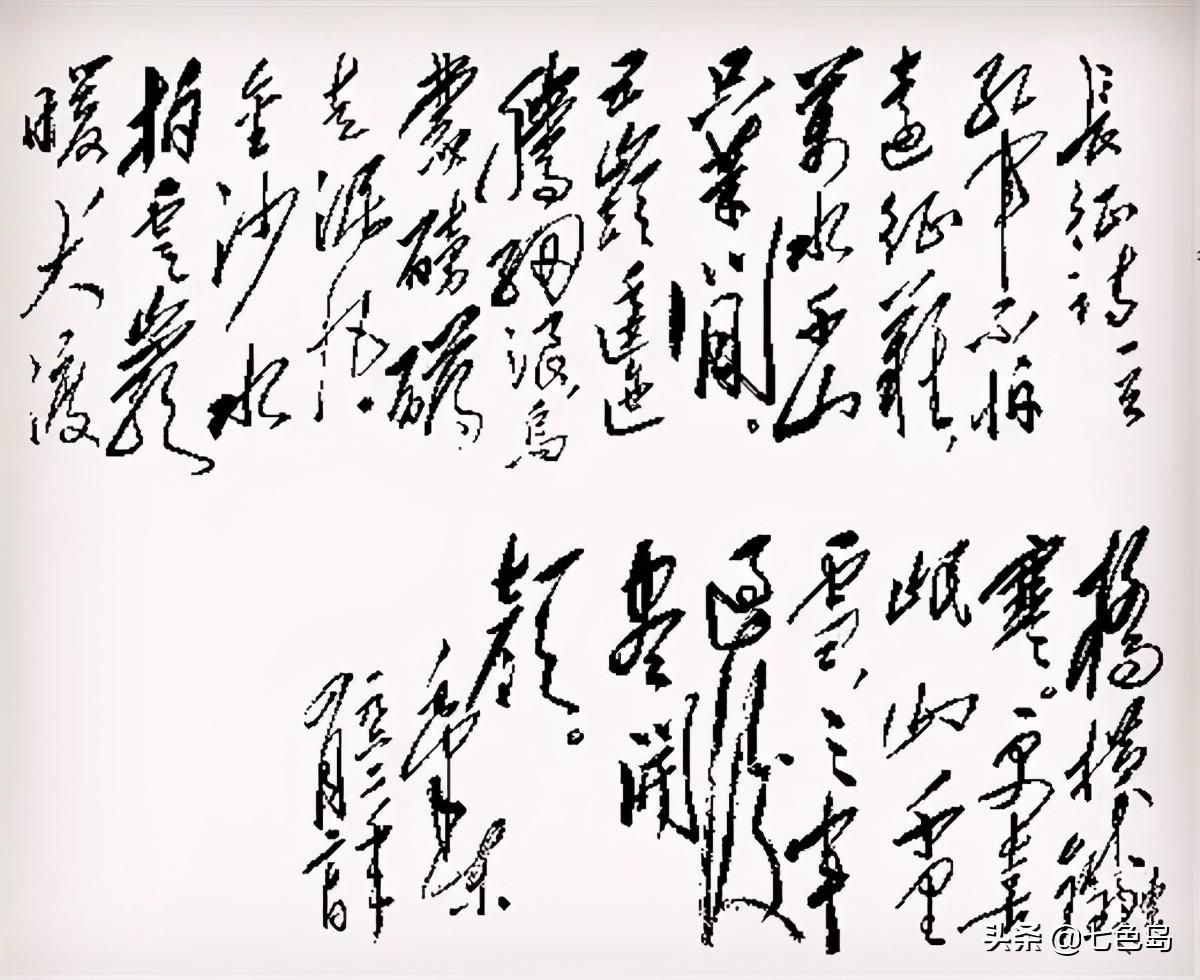 長征詩一首
紅軍不怕
遠征難，
萬水千山
只等閒。
五嶺逶迤
騰細浪，烏
蒙磅礴
走泥丸。
金沙水
拍雲巖
暖大渡
橋橫鐵索
寒。更喜
岷山千里
雪，三軍
過後
盡開
顏。
毛澤東
头条 @七色岛